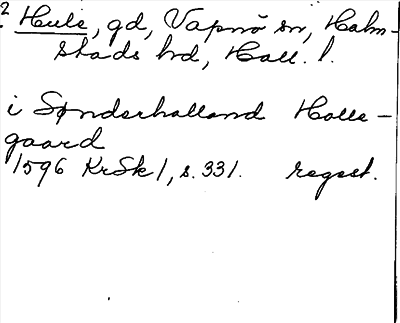 2 Hule, gd, Vapnö sn, Halm-
stads hd, Hall. l.
i Sønderhalland Holle-
gaard
1596 KrSk 1, s. 331. regest.